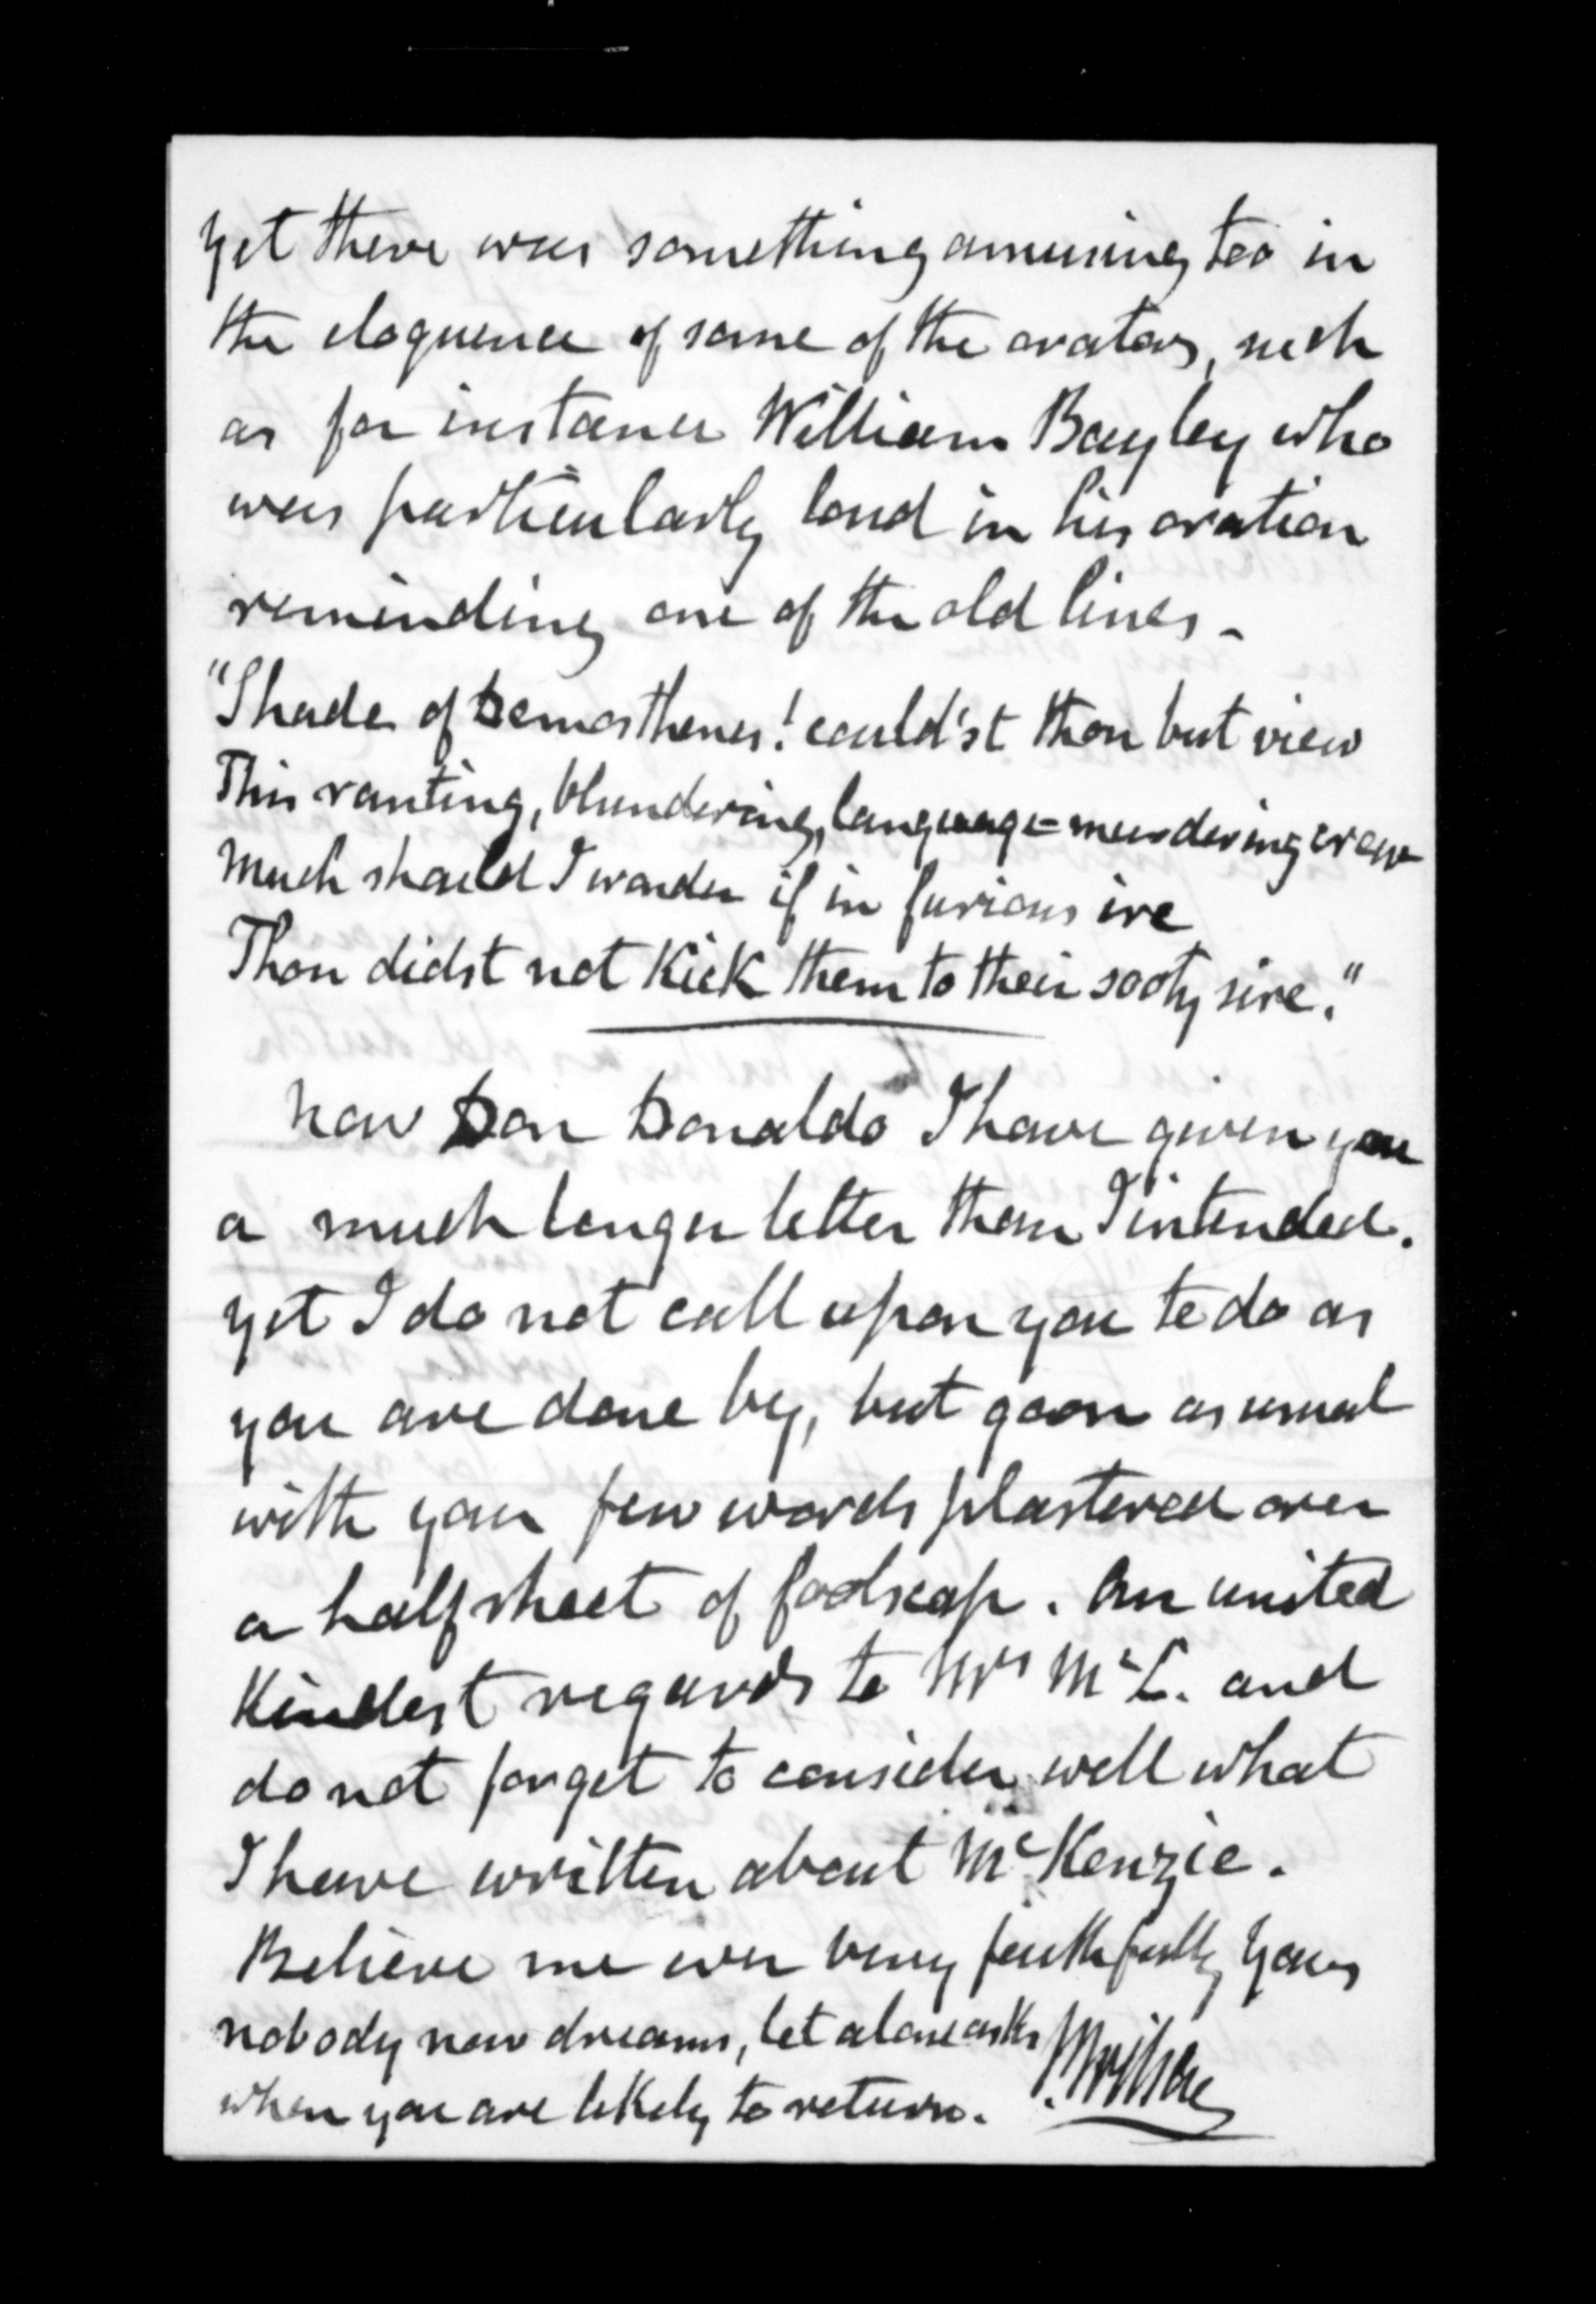 yet there was something amusing too in
the eloquence of some of the orators, such
as for instance William Bayley who
was particularly loud in his oration
reminding one of the old lines -
"Shade of Demosthenes! could'st thou but view
This ranting, blundering, language-murdering crew
Much should I wonder if in furious ire
Thou didst not kick them to their sooty sire."
Now Don Donaldo I have given you
a much longer letter than I intended.
yet I do not call upon you to do as
you are done by, but go on as usual
with your few words plastered over
a half sheet of foolscap. Our united
Kindest regards to Mrs McL. and
do not forget to consider well what
I have written about McKenzie.
Believe me ever very faithfully yours
nobody now dreams, let alone asks
when you are likely to return.